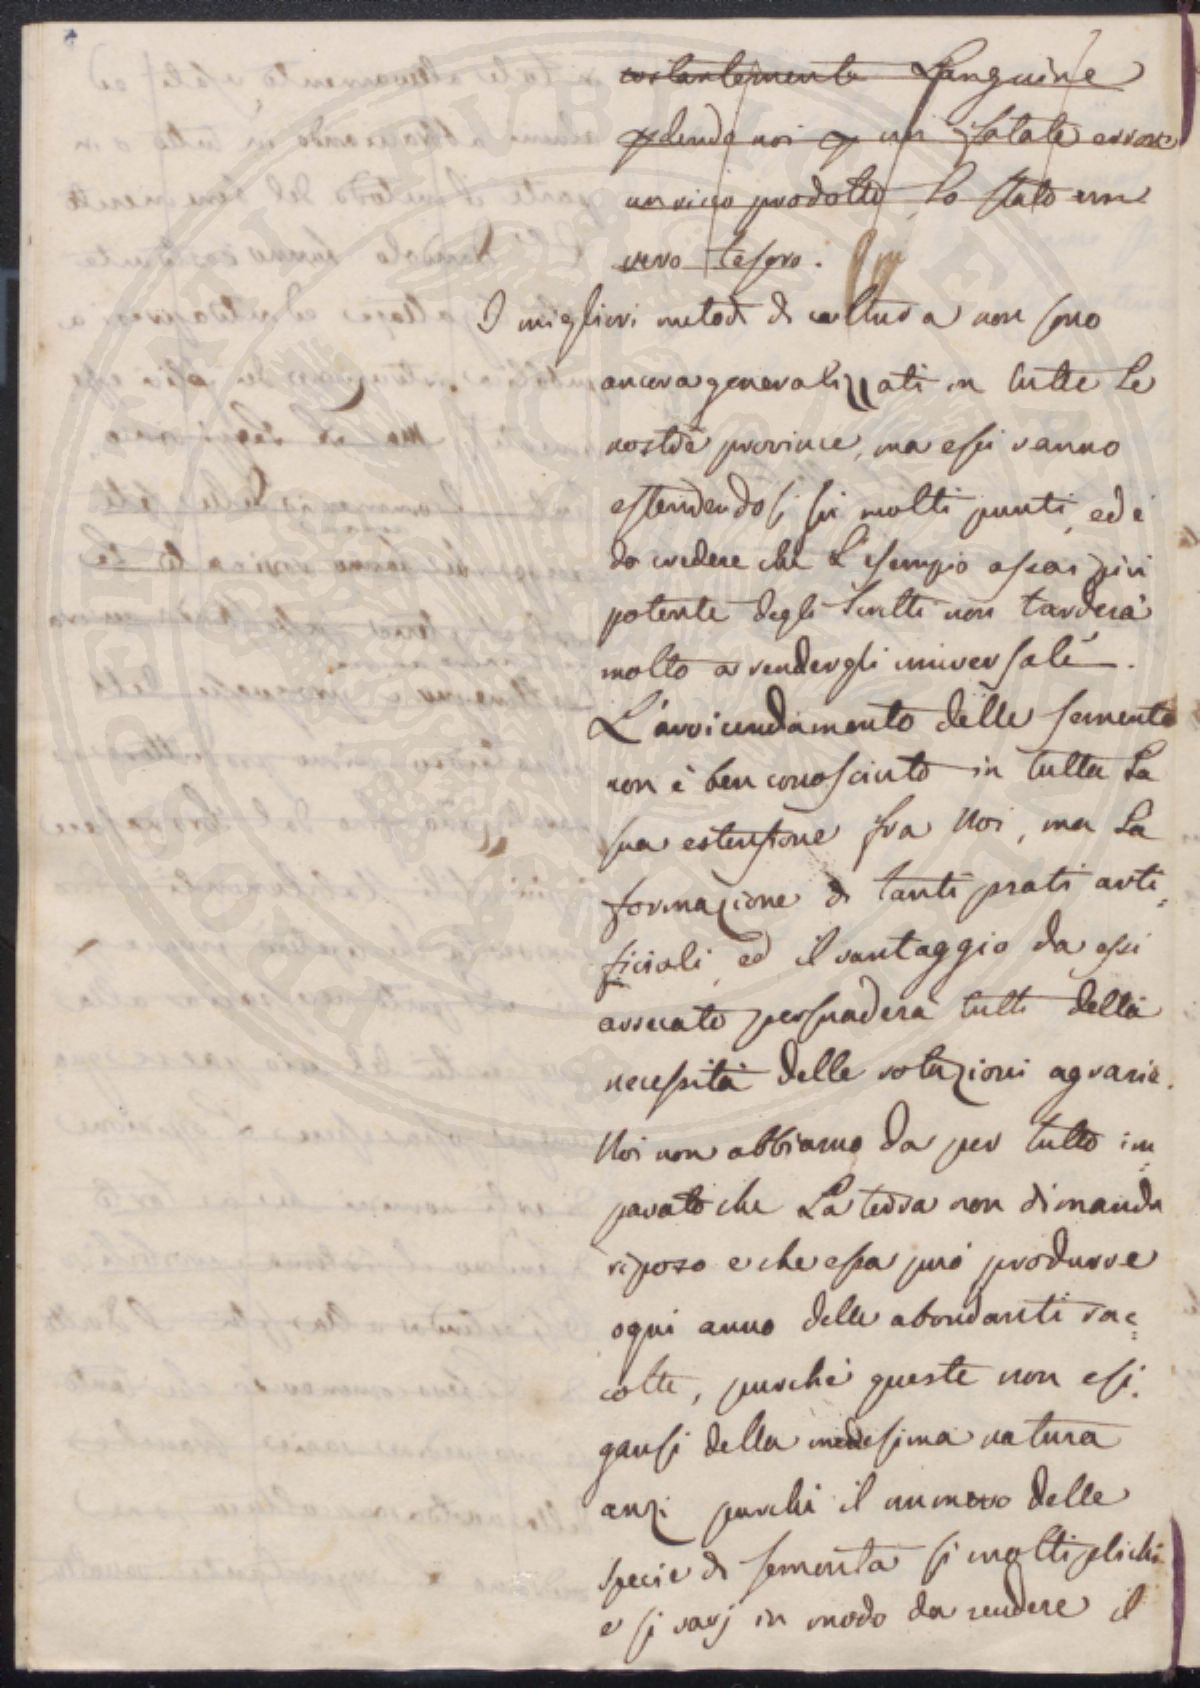 costantemente Languire
perdendo noi per un fatale errore
un ricco prodotto, Lo Stato un
vero tesoro.
I migliori metodi di coltura non sono
ancora generalizzati in tutte Le
nostre province, ma essi vanno
estendendosi su molti punti, ed è
da credere che L'esempio assai più
potente degli scritti non tarderà
molto a rendergli universali.
L'avvicendamento delle semente
non è ben conosciuto in tutta La
sua estensione fra Noi, ma La
formazione di tanti prati arti=
ficiali, ed il vantaggio da essi
arrecato persuaderà tutti della
necessità delle rotazioni agrarie.
Noi non abbiamo da per tutto im=
parato che La terra non dimanda
riposo e che essa può produrre
ogni anno delle abondanti rac=
colte, purchè queste non esi=
gansi della medesima natura
anzi purchè il numero delle
specie di sementa si moltiplichi
e si varj in modo da rendere il